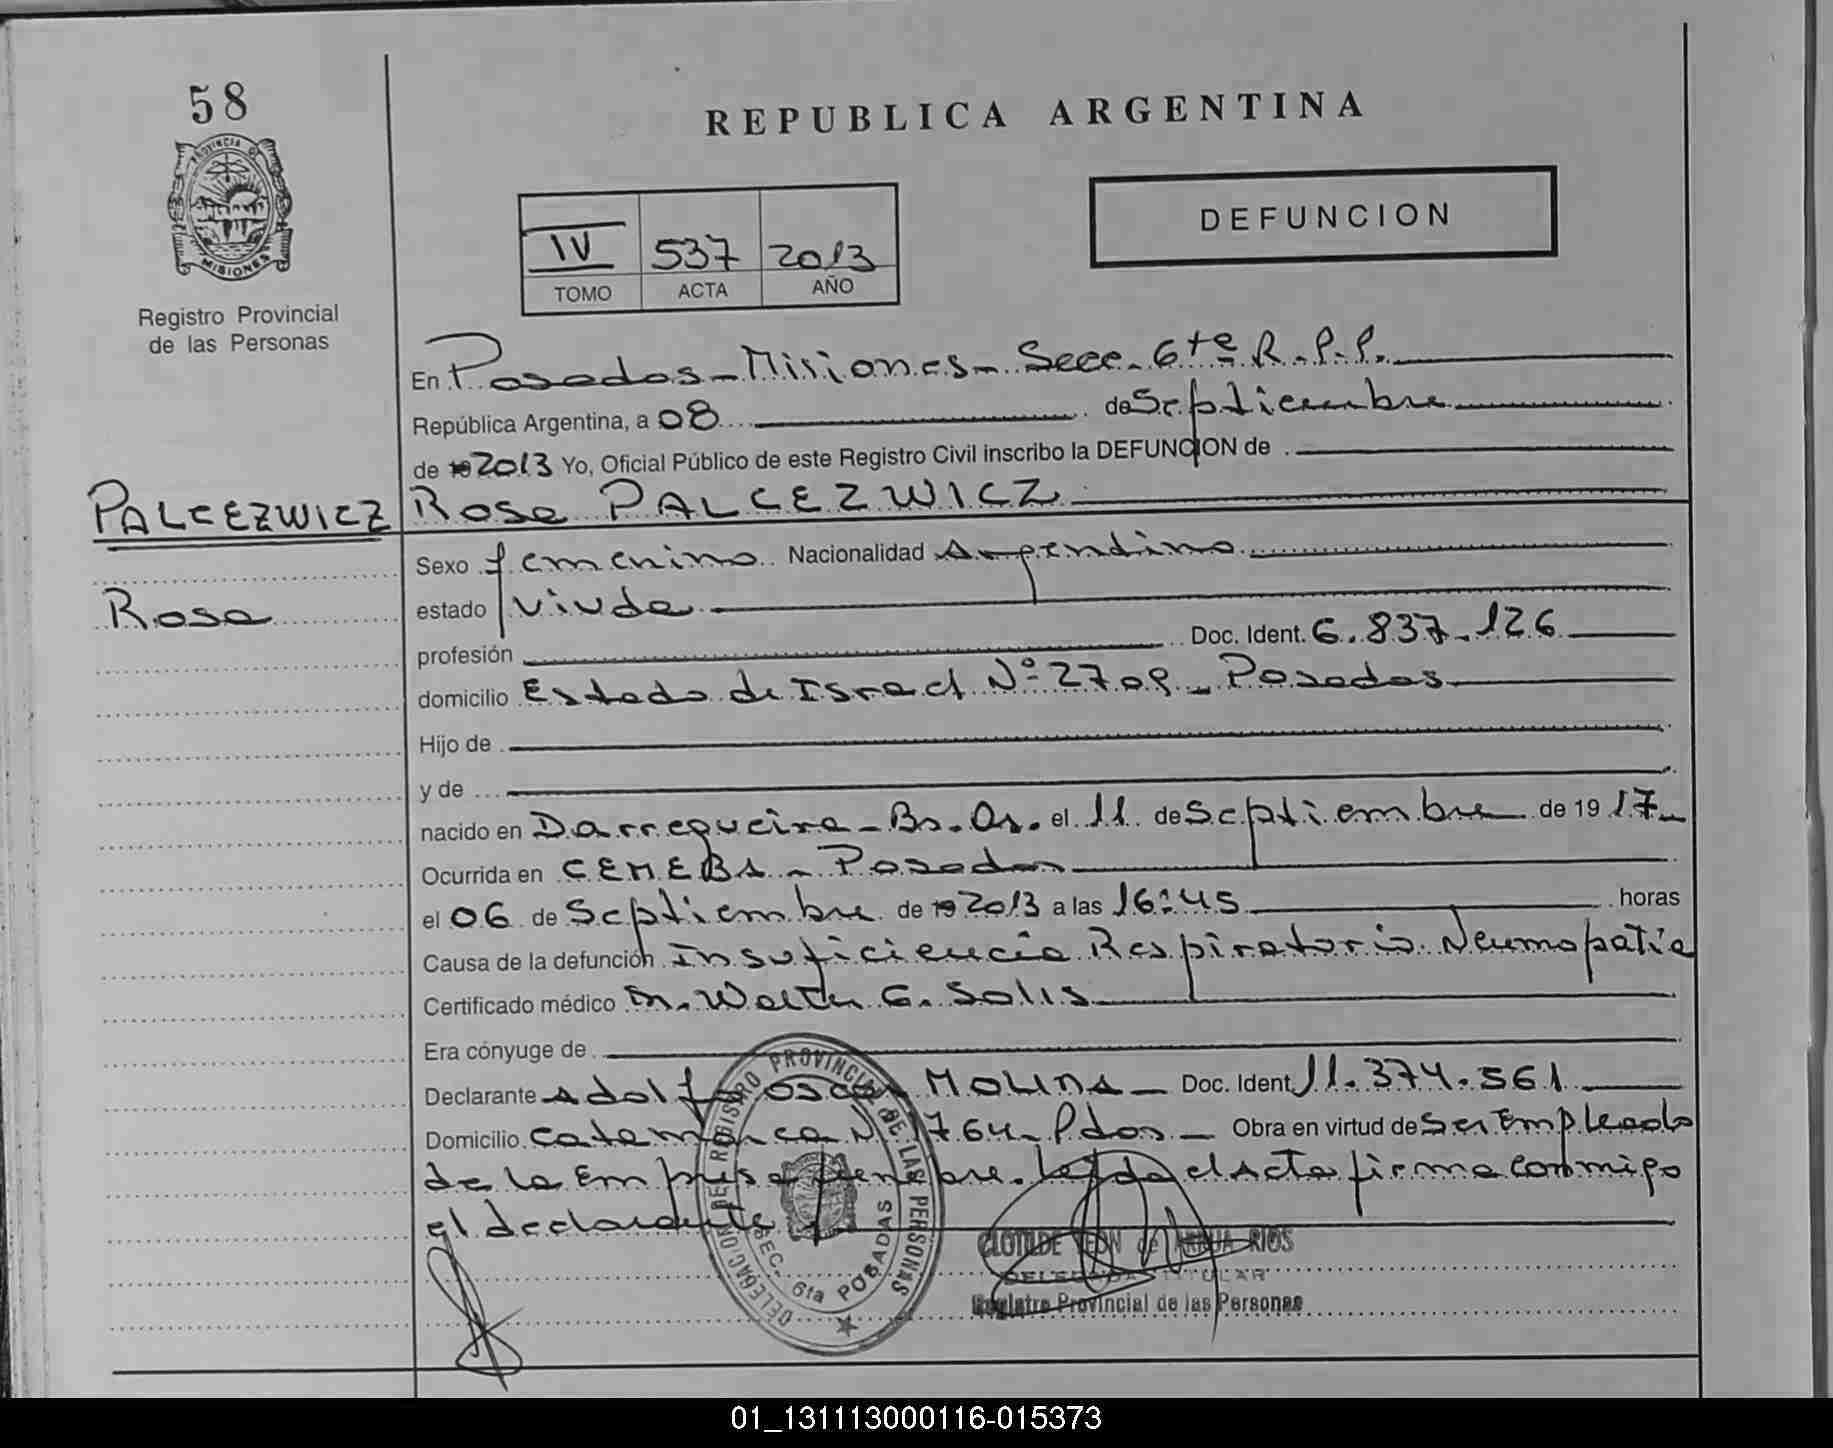 58
REPUBLICA ARGENTINA
PROVINCIA DE
MISIONES
Registro Provincial
de las Personas
IV 537 2013
TOMO ACTA AÑO
DEFUNCION
En Posadas - Misiones - Secc. 6ta R.P.P.
República Argentina, a 08 de Septiembre
de 19 2013 Yo, Oficial Público de este Registro Civil inscribo la DEFUNCION de
PALCEZWICZ Rosa PALCEZWICZ
Rosa
Sexo femenino Nacionalidad Argentina
estado viuda
profesión Doc. Ident. 6.837.126
domicilio Estado de Israel N° 2709 - Posadas
Hijo de
y de
nacido en Darregueira - Bs. As. el 11 de Septiembre de 19 17
Ocurrida en CEMEBA - Posadas
el 06 de Septiembre de 19 2013 a las 16:45 horas
Causa de la defunción Insuficiencia Respiratoria Neumopatía
Certificado médico Dr. Walter G. Solis
Era cónyuge de
Declarante Adolfo Oscar MOLINA - Doc. Ident. 11.374.561
Domicilio Catamarca N° 1764 - Pdas - Obra en virtud de Ser Empleado
de la Empresa leída el Acta firma conmigo
el declarante
DELEGACION DE REGISTRO PROVINCIAL DE LAS PERSONAS
SEC. 6ta POSADAS
CLOTILDE de RIOS
DELEGADA TITULAR
Registro Provincial de las Personas
01_131113000116-015373